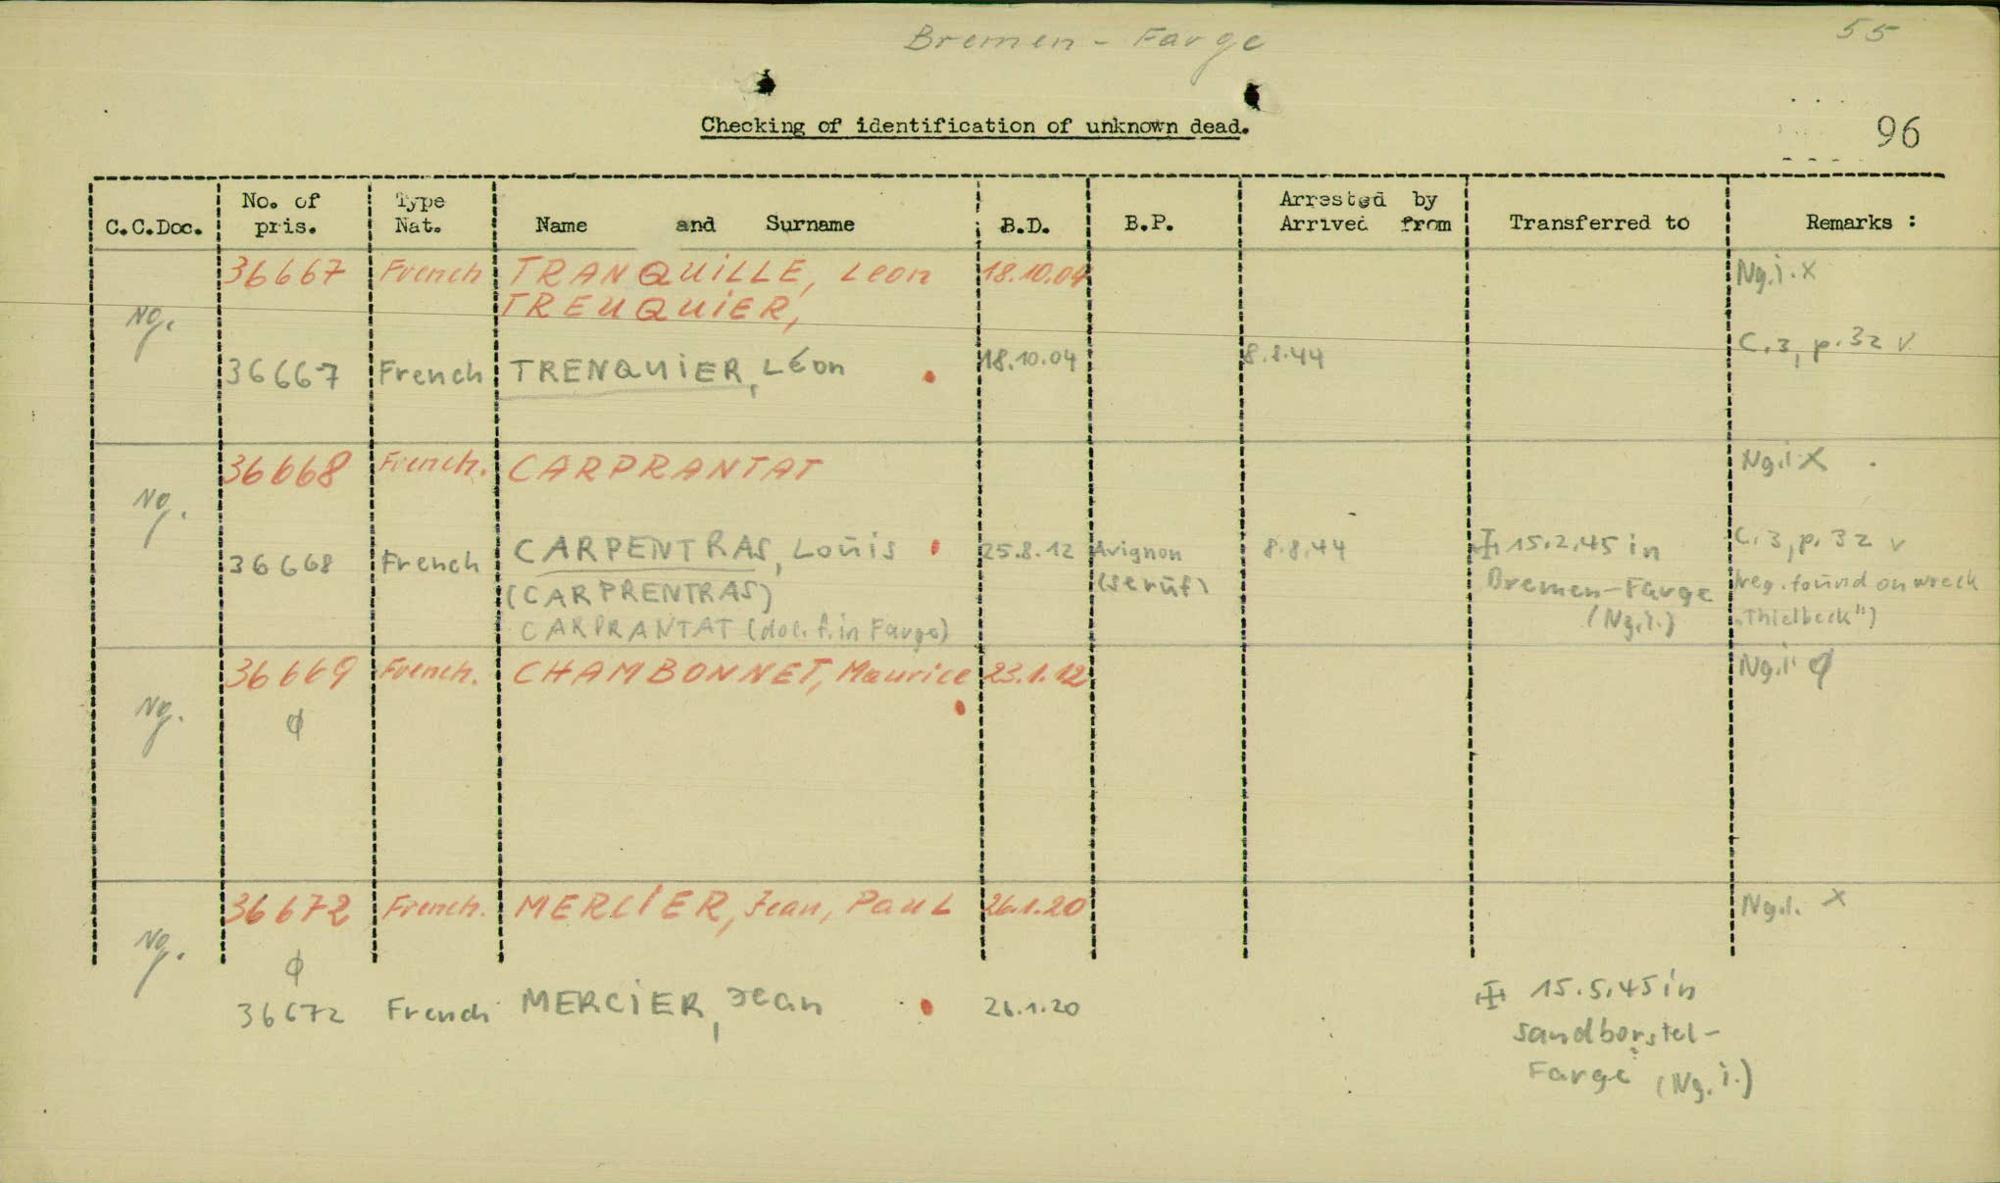 Bremen - Farge
55
Checking of identification of unknown dead.
96
C.C.Doc. No. of pris. Type Nat. Name and Surname B.D. B.P. Arrested by Arrived from Transferred to Remarks :
36667 French TRANQUILLE, Leon 18.10.04 Ng.i. X
TREUQUIER,
Ng.
36667 French TRENQUIER, Léon 18.10.04 8.8.44 C.3, p.32 v
36668 French. CARPRANTAT Ng.i X
Ng.
36668 French CARPENTRAS, Loūis 25.8.12 Avignon 8.8.44 15.2.45 in C.3, p.32 v
(CARPRENTRAS) Bremen-Farge found on wreck
CARPRANTAT (dok. f. in Farge) (Ng.i.) "Thielbeck")
36669 French. CHAMBONNET, Maurice 23.1.12 Ng.i φ
Ng. φ
36672 French. MERCIER, Jean, Paul 26.1.20 Ng.i. X
Ng. φ
36672 French MERCIER, Jean 26.1.20 15.5.45 in
Sandborstel-
Farge (Ng.i.)